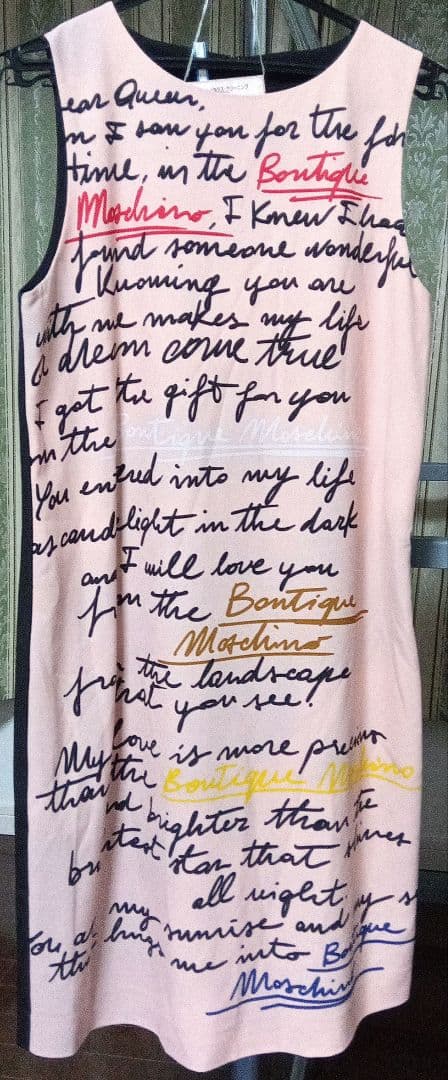 ear Queen,
n I saw you for the fir
time, in the Boutique
Moschino, I Knew I had
found someone wonderful
Knowing you are
with me makes my life
a dream come true
I got the gift for you
om the Boutique Moschin
You entred into my life
as candlelight in the dark
and I will love you
from the Boutique
Moschino
from the landscape
that you see!
My love is more precious
than the Boutique Moschino
nd brighter than the
brightest star that shines
all night.
You are my sunrise and my s
that brings me into Boutique
Moschino